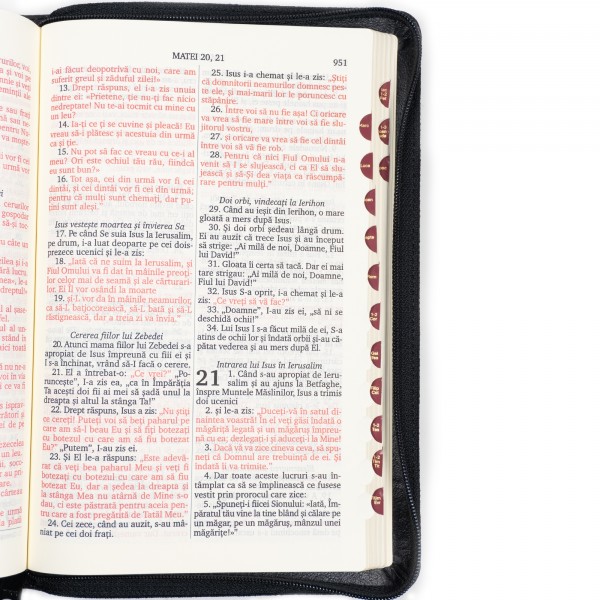 MATEI 20, 21
951
i-ai făcut deopotrivă cu noi, care am
suferit greul și zăduful zilei!»
13. Drept răspuns, el i-a zis unuia
dintre ei: «Prietene, ție nu-ți fac nicio
nedreptate! Nu te-ai tocmit cu mine cu
un leu?
14. Ia-ți ce ți se cuvine și pleacă! Eu
vreau să-i plătesc și acestuia din urmă
ca și ție.
15. Nu pot să fac ce vreau cu ce-i al
meu? Ori este ochiul tău rău, fiindcă
eu sunt bun?»
16. Tot așa, cei din urmă vor fi cei
dintâi, și cei dintâi vor fi cei din urmă;
pentru că mulți sunt chemați, dar pu-
țini sunt aleși."
Isus vestește moartea și învierea Sa
17. Pe când Se suia Isus la Ierusalim,
pe drum, i-a luat deoparte pe cei dois-
prezece ucenici și le-a zis:
18. „Iată că ne suim la Ierusalim, și
Fiul Omului va fi dat în mâinile preoți-
lor celor mai de seamă și ale cărturari-
lor. Ei Îl vor osândi la moarte
19. și-L vor da în mâinile neamurilor,
ca să-L batjocorească, să-L bată și să-L
răstignească, dar a treia zi va învia."
Cererea fiilor lui Zebedei
20. Atunci mama fiilor lui Zebedei s-a
apropiat de Isus împreună cu fiii ei și
I s-a închinat, vrând să-I facă o cerere.
21. El a întrebat-o: „Ce vrei?" „Po-
runcește", I-a zis ea, „ca în Împărăția
Ta acești doi fii ai mei să șadă unul la
dreapta și altul la stânga Ta!"
22. Drept răspuns, Isus a zis: „Nu știți
ce cereți! Puteți voi să beți paharul pe
care am să-l beau Eu și să fiți botezați
cu botezul cu care am să fiu botezat
Eu?" „Putem", I-au zis ei.
23. Și El le-a răspuns: „Este adevă-
rat că veți bea paharul Meu și veți fi
botezați cu botezul cu care am să fiu
botezat Eu, dar a ședea la dreapta și
la stânga Mea nu atârnă de Mine s-o
dau, ci este păstrată pentru aceia pen-
tru care a fost pregătită de Tatăl Meu."
24. Cei zece, când au auzit, s-au mâ-
niat pe cei doi frați.
25. Isus i-a chemat și le-a zis: „Știți
că domnitorii neamurilor domnesc pes-
te ele, și mai-marii lor le poruncesc cu
stăpânire.
26. Între voi să nu fie așa! Ci oricare
va vrea să fie mare între voi să fie slu-
jitorul vostru,
27. și oricare va vrea să fie cel dintâi
între voi să vă fie rob.
28. Pentru că nici Fiul Omului n-a
venit să I se slujească, ci ca El să slu-
jească și să-Și dea viața ca răscumpă-
rare pentru mulți."
Doi orbi, vindecați la Ierihon
29. Când au ieșit din Ierihon, o mare
gloată a mers după Isus.
30. Și doi orbi ședeau lângă drum.
Ei au auzit că trece Isus și au început
să strige: „Ai milă de noi, Doamne, Fiul
lui David!"
31. Gloata îi certa să tacă. Dar ei mai
tare strigau: „Ai milă de noi, Doamne,
Fiul lui David!"
32. Isus S-a oprit, i-a chemat și le-a
zis: „Ce vreți să vă fac?"
33. „Doamne", I-au zis ei, „să ni se
deschidă ochii!"
34. Lui Isus I s-a făcut milă de ei, S-a
atins de ochii lor și îndată orbii și-au că-
pătat vederea și au mers după El.
Intrarea lui Isus în Ierusalim
21 1. Când s-au apropiat de Ieru-
salim și au ajuns la Betfaghe,
înspre Muntele Măslinilor, Isus a trimis
doi ucenici
2. și le-a zis: „Duceți-vă în satul di-
naintea voastră! În el veți găsi îndată o
măgăriță legată și un măgăruș împreu-
nă cu ea; dezlegați-i și aduceți-i la Mine!
3. Dacă vă va zice cineva ceva, să spu-
neți că Domnul are trebuință de ei. Și
îndată îi va trimite."
4. Dar toate aceste lucruri s-au în-
tâmplat ca să se împlinească ce fusese
vestit prin prorocul care zice:
5. „Spuneți-i fiicei Sionului: «Iată, Îm-
păratul tău vine la tine blând și călare pe
un măgar, pe un măgăruș, mânzul unei
măgărițe!»"